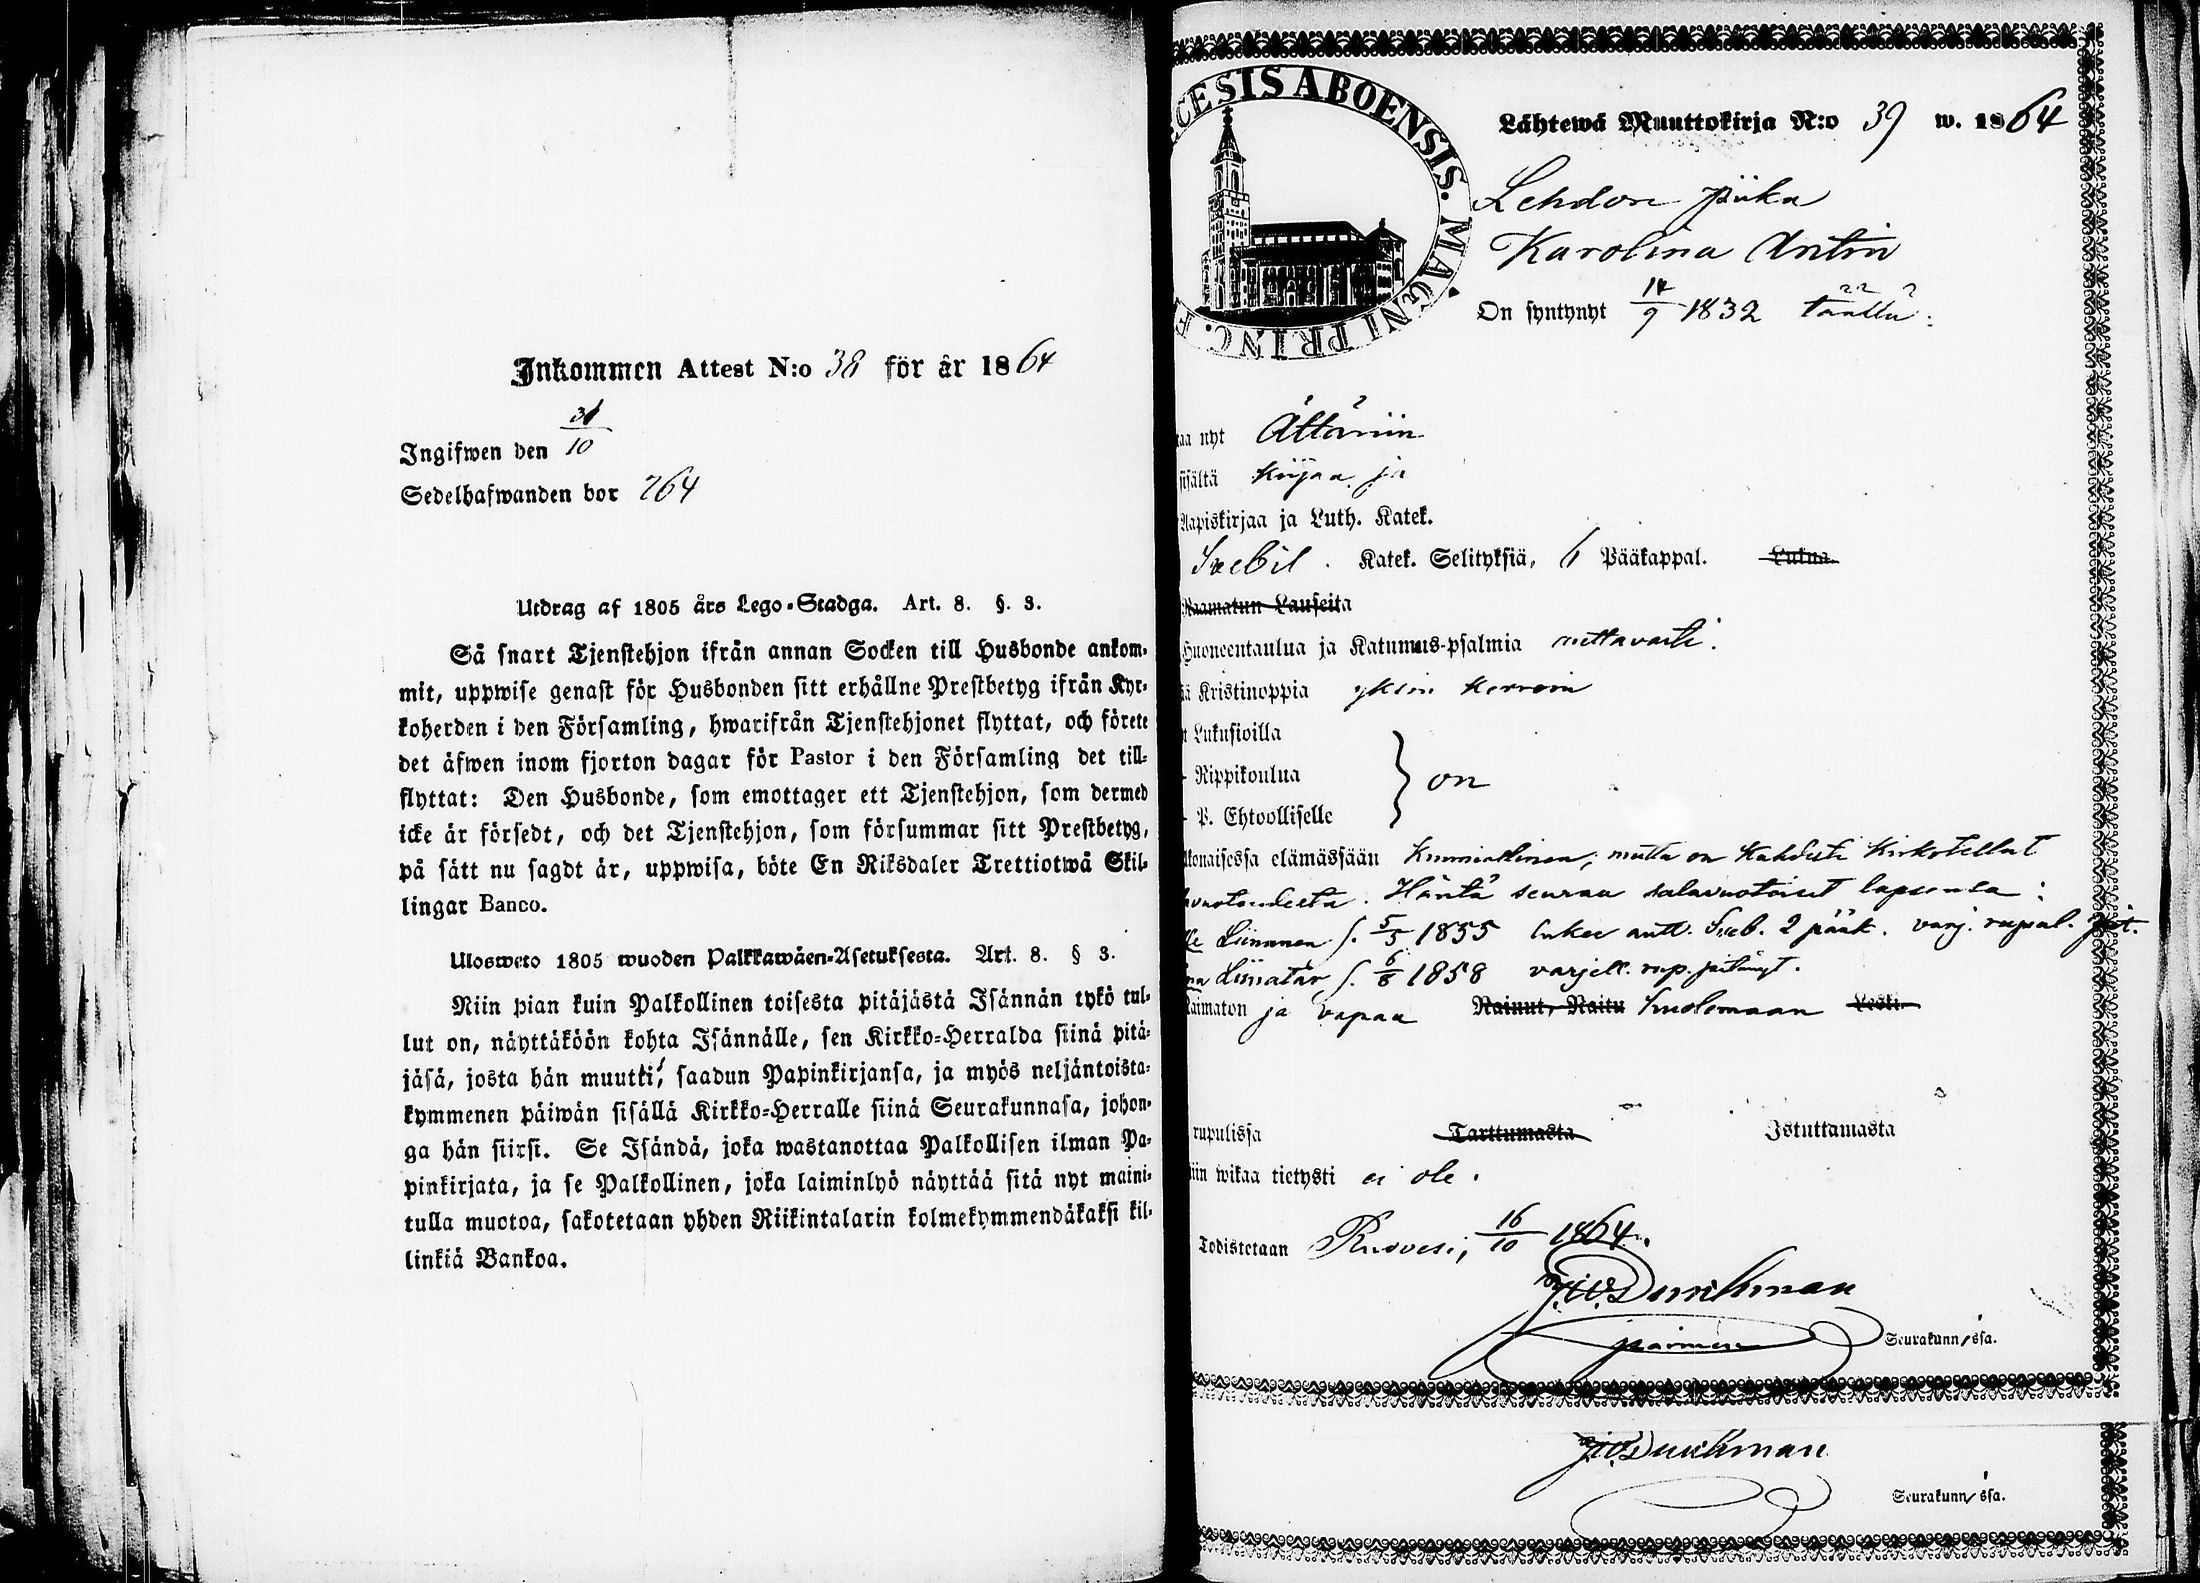 Inkommen Attest N:o 38 för år 1864
31/10
Ingifwen den
Sedelhafwanden bor 264
Utdrag af 1805 års Lego-Stadga. Art. 8. §. 3.
Så snart Tjenstehjon ifrån annan Socken till Husbonde ankom-
mit, uppwise genast för Husbonden sitt erhållne Prestbetyg ifrån Kyr-
koherden i den Församling, hwarifrån Tjenstehjonet flyttat, och förete
det äfwen inom fjorton dagar för Pastor i den Församling det till-
flyttat: Den Husbonde, som emottager ett Tjenstehjon, som dermed
icke är försedt, och det Tjenstehjon, som försummar sitt Prestbetyg,
på sätt nu sagdt är, uppwisa, böte En Riksdaler Trettiotwå Skil-
lingar Banco.
Ulosweto 1805 wuoden Palkkawäen-Asetuksesta. Art. 8. § 3.
Niin pian kuin Palkollinen toisesta pitäjästä Isännän tykö tul-
lut on, näyttäköön kohta Isännälle, sen Kirkko-Herralda siinä pitä-
jäsä, josta hän muutti, saadun Papinkirjansa, ja myös neljäntoista-
kymmenen päiwän sisällä Kirkko-Herralle siinä Seurakunnasa, johon-
ga hän siirsi. Se Isändä, joka wastanottaa Palkollisen ilman Pa-
pinkirjata, ja se Palkollinen, joka laiminlyö näyttää sitä nyt maini-
tulla muotoa, sakotetaan yhden Riikintalarin kolmekymmendäkaksi kil-
linkiä Bankoa.
CESIS ABOENSIS. MAGNI PRINC. F
Lähtewä Muuttokirja N:o 39 w. 1864
Lehdon piika
Karolina Antin
On syntynyt 14/9 1832 täällä.
taa nyt Ättäriin
sisältä kirjaa ja
Aapiskirjaa ja Luth. Katek.
Svebil. Katek. Selityksiä, 6 Pääkappal. Lukua.
Raamatun Lauseita
Huoneentaulua ja Katumus-psalmia auttavasti.
ä Kristinoppia yksin kerroin
t Lukusioilla
Rippikoulua } on
P. Ehtoolliselle
lkonaisessa elämässään kunniallinen, mutta on kahdesti kirkotellut
Häntä seuraa salavuotoiset lapsensa:
lle Liinanen s. 5/5 1855 lukee autt. Sveb. 2 pääk. varj. rupul. pit.
na Liinatar s. 6/8 1858 varjell. rup. pitänyt.
Naimaton ja vapaa Nainut, Naitu kuolemaan Leski
rupulissa Tarttumasta Istuttamasta
iin wikaa tietysti ei ole.
Todistetaan Ruovesi, 16/10 1864.
J.W. Durchman
Seurakunn ssa.
J.W. Durchman
Seurakunn ssa.